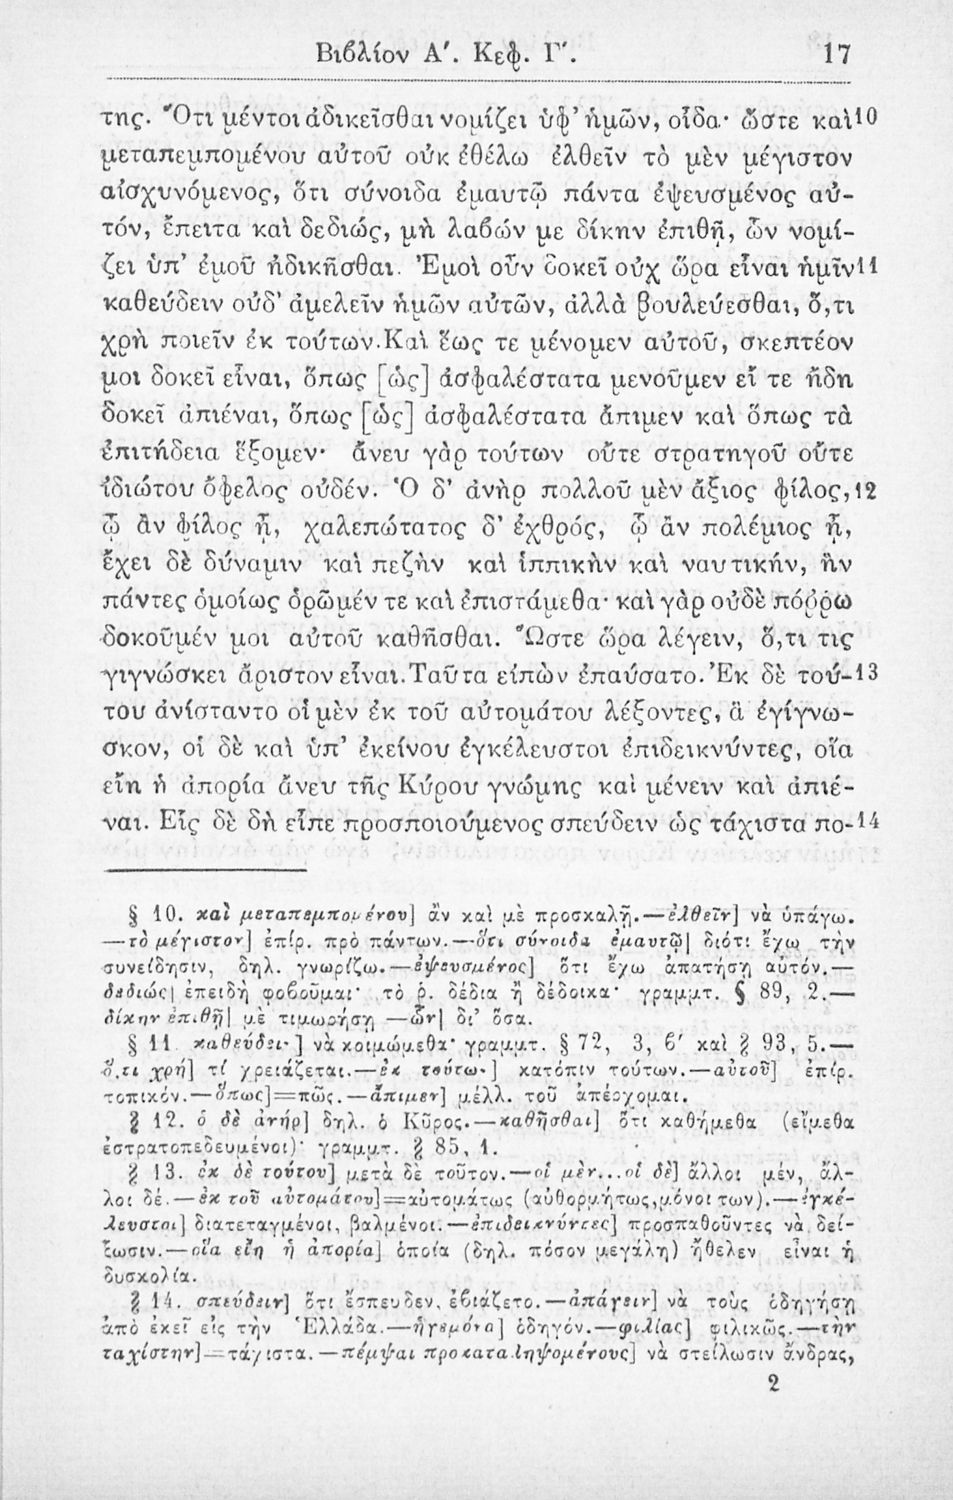 Βιβλίον Α΄. Κεφ. Γ΄. 17
της. Ὅτι μέντοι ἀδικεῖσθαι νομίζει ὑφ’ ἡμῶν, οἶδα· ὥστε καὶ 10
μεταπεμπομένου αὐτοῦ οὐκ ἐθέλω ἐλθεῖν τὸ μὲν μέγιστον
αἰσχυνόμενος, ὅτι σύνοιδα ἐμαυτῷ πάντα ἐψευσμένος αὐ-
τόν, ἔπειτα καὶ δεδιώς, μὴ λαβών με δίκην ἐπιθῇ, ὧν νομί-
ζει ὑπ’ ἐμοῦ ἠδικῆσθαι. Ἐμοὶ οὖν δοκεῖ οὐχ ὥρα εἶναι ἡμῖν 11
καθεύδειν οὐδ’ ἀμελεῖν ἡμῶν αὐτῶν, ἀλλὰ βουλεύεσθαι, ὅ,τι
χρὴ ποιεῖν ἐκ τούτων. Καὶ ἕως τε μένομεν αὐτοῦ, σκεπτέον
μοι δοκεῖ εἶναι, ὅπως [ὡς] ἀσφαλέστατα μενοῦμεν εἴ τε ἤδη
δοκεῖ ἀπιέναι, ὅπως [ὡς] ἀσφαλέστατα ἄπιμεν καὶ ὅπως τὰ
ἐπιτήδεια ἕξομεν· ἄνευ γὰρ τούτων οὔτε στρατηγοῦ οὔτε
ἰδιώτου ὄφελος οὐδέν. Ὁ δ’ ἀνὴρ πολλοῦ μὲν ἄξιος φίλος, 12
ᾧ ἂν φίλος ᾖ, χαλεπώτατος δ’ ἐχθρός, ᾧ ἂν πολέμιος ᾖ,
ἔχει δὲ δύναμιν καὶ πεζὴν καὶ ἱππικὴν καὶ ναυτικήν, ἣν
πάντες ὁμοίως ὁρῶμέν τε καὶ ἐπιστάμεθα· καὶ γὰρ οὐδὲ πόῤῥω
δοκοῦμέν μοι αὐτοῦ καθῆσθαι. Ὥστε ὥρα λέγειν, ὅ,τι τις
γιγνώσκει ἄριστον εἶναι. Ταῦτα εἰπὼν ἐπαύσατο. Ἐκ δὲ τού- 13
του ἀνίσταντο οἱ μὲν ἐκ τοῦ αὐτομάτου λέξοντες, ἃ ἐγίγνω-
σκον, οἱ δὲ καὶ ὑπ’ ἐκείνου ἐγκέλευστοι ἐπιδεικνύντες, οἵα
εἴη ἡ ἀπορία ἄνευ τῆς Κύρου γνώμης καὶ μένειν καὶ ἀπιέ-
ναι. Εἷς δὲ δὴ εἶπε προσποιούμενος σπεύδειν ὡς τάχιστα πο- 14
§ 10. καὶ μεταπεμπομένου] ἂν καὶ μὲ προσκαλῇ.—ἐλθεῖν] νὰ ὑπάγω.
—τὸ μέγιστον] ἐπίρ. πρὸ πάντων.—ὅτι σύνοιδα ἐμαυτῷ] διότι ἔχω τὴν
συνείδησιν, δηλ. γνωρίζω.—ἐψευσμένος] ὅτι ἔχω ἀπατήσῃ αὐτόν.—
δεδιώς] ἐπειδὴ φοβοῦμαι· τὸ ῥ. δέδια ἢ δέδοικα· γραμμτ. § 89, 2.—
δίκην ἐπιθῇ] μὲ τιμωρήσῃ—ὧν] δι’ ὅσα.
§ 11 καθεύδειν] νὰ κοιμώμεθα· γραμμτ. § 72, 3, 6΄ καὶ § 93, 5.—
ὅ,τι χρή] τί χρειάζεται.—ἐκ τούτων] κατόπιν τούτων.—αὐτοῦ] ἐπίρ.
τοπικόν.—ὅπως]=πῶς.—ἄπιμεν] μέλλ. τοῦ ἀπέρχομαι.
§ 12. ὁ δὲ ἀνήρ] δηλ. ὁ Κῦρος.—καθῆσθαι] ὅτι καθήμεθα (εἴμεθα
ἐστρατοπεδευμένοι)· γραμμτ. § 85, 1.
§ 13. ἐκ δὲ τούτου] μετὰ δὲ τοῦτον.—οἱ μὲν...οἱ δὲ] ἄλλοι μέν, ἄλ-
λοι δέ.—ἐκ τοῦ αὐτομάτου]=αὐτομάτως (αὐθορμήτως, μόνοι των).—ἐγκέ-
λευστοι] διατεταγμένοι, βαλμένοι.—ἐπιδεικνύντες] προσπαθοῦντες νὰ δεί-
ξωσιν.—οἵα εἴη ἡ ἀπορία] ὁποία (δηλ. πόσον μεγάλη) ἤθελεν εἶναι ἡ
δυσκολία.
§ 14. σπεύδειν] ὅτι ἔσπευδεν, ἐβιάζετο.—ἀπάγειν] νὰ τοὺς ὁδηγήσῃ
ἀπὸ ἐκεῖ εἰς τὴν Ἑλλάδα.—ἡγεμόνα] ὁδηγόν.—φιλίας] φιλικῶς.—τὴν
ταχίστην]=τάχιστα.—πέμψαι προκαταληψομένους] νὰ στείλωσιν ἄνδρας,
2